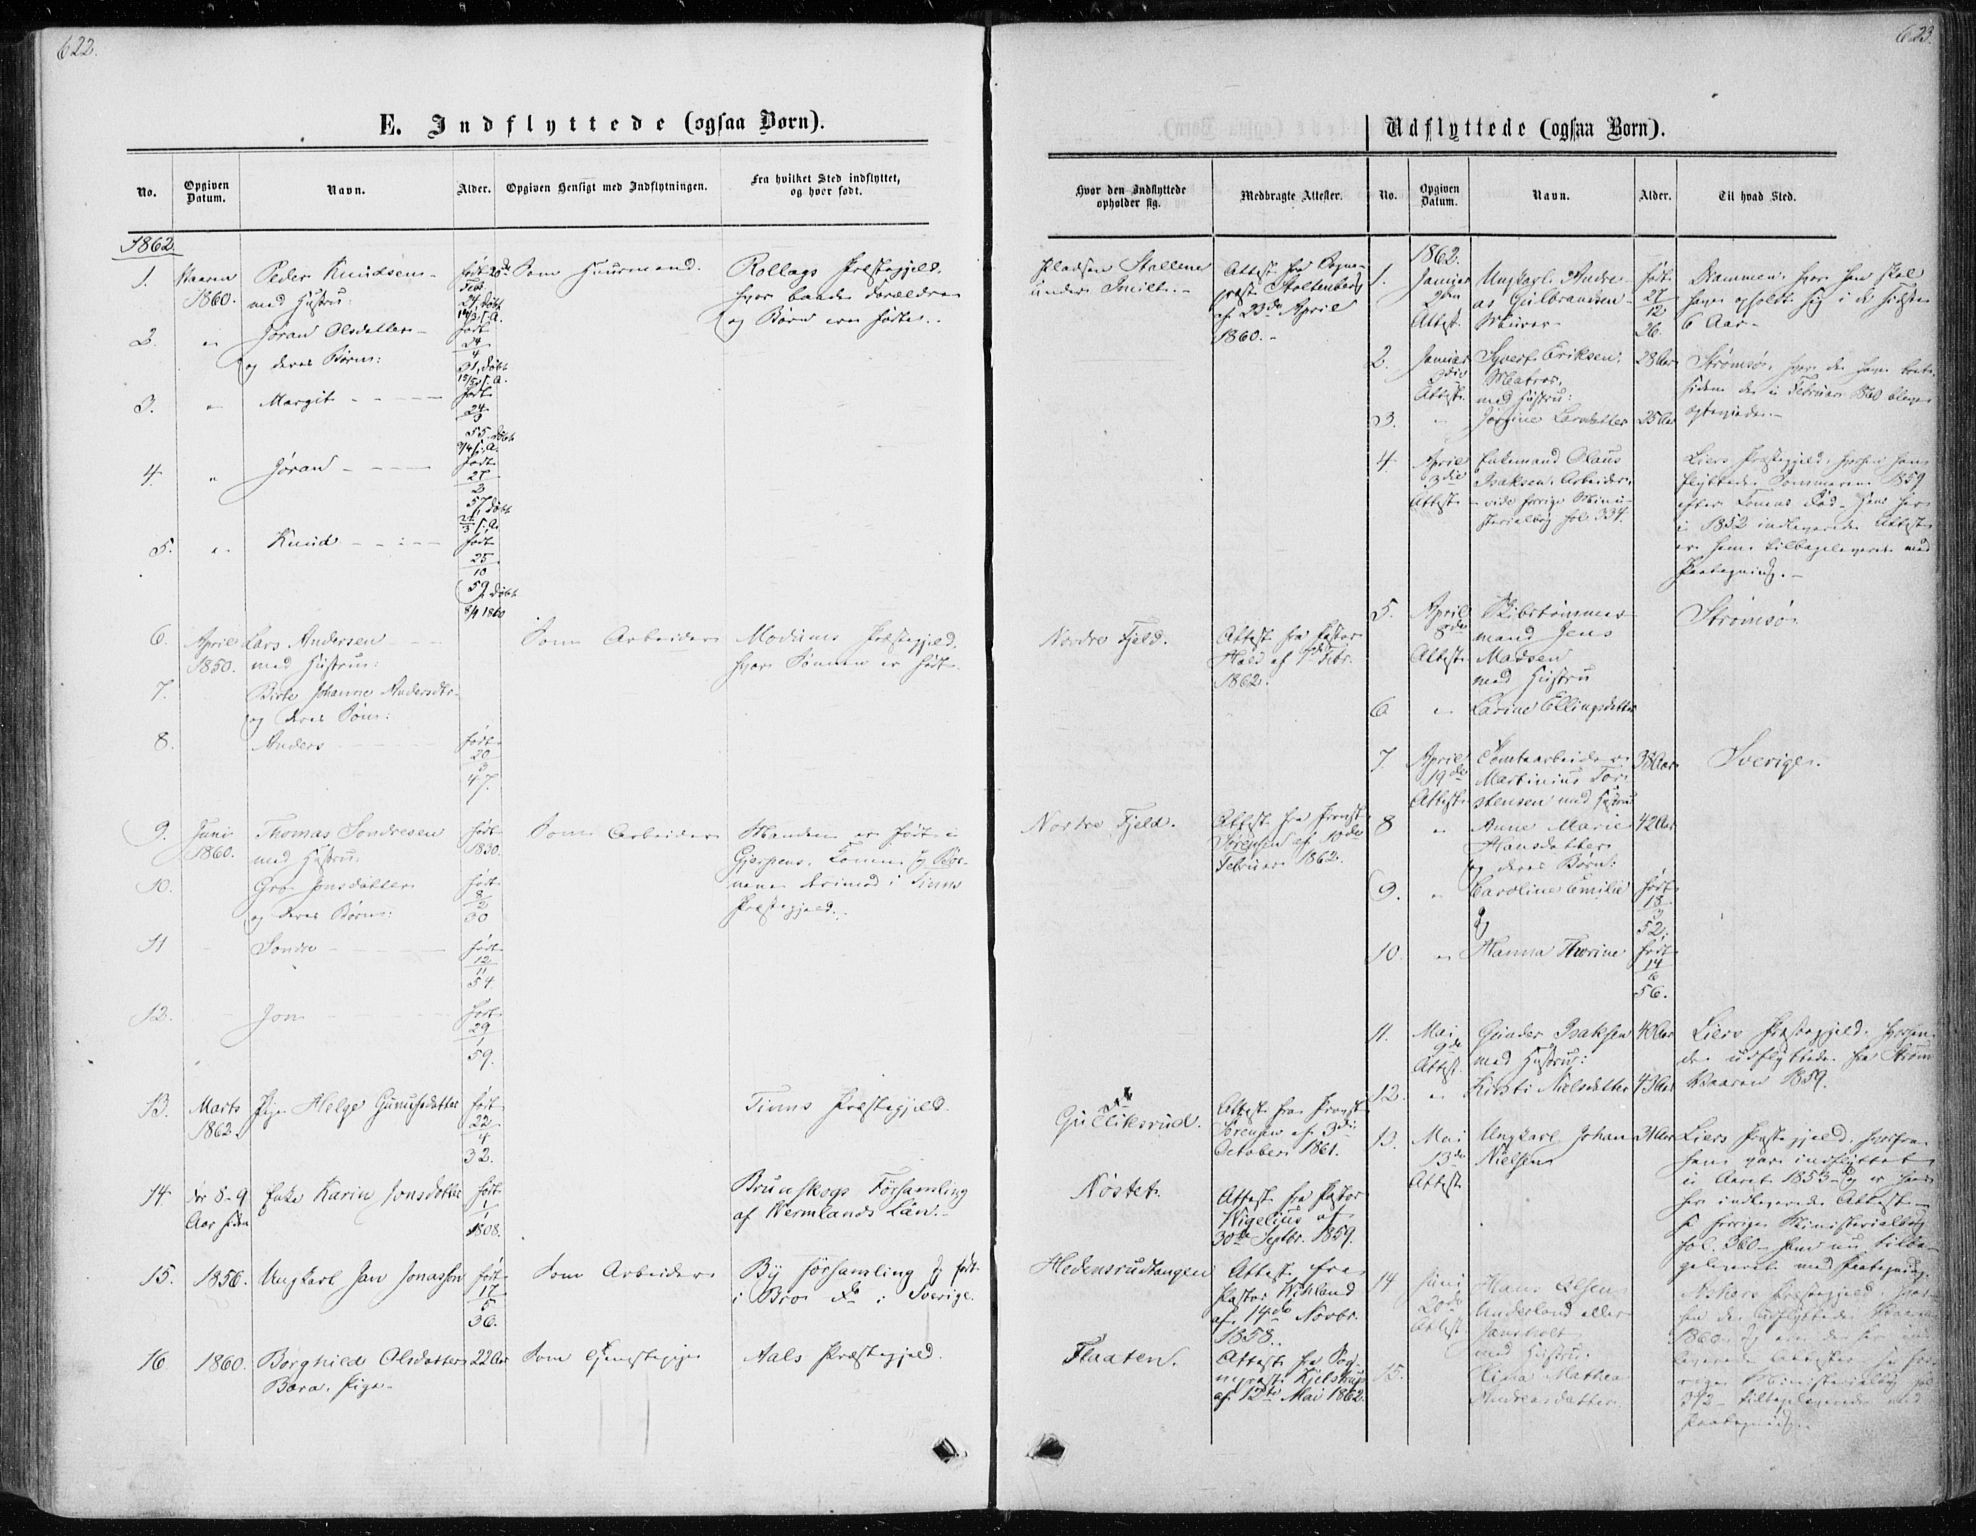 622.
E. Indflyttede (ogsaa Børn).
No.
Opgiven Datum.
Navn.
Alder.
Opgiven Hensigt med Indflytningen.
Fra hvilket Sted indflyttet, og hvor født.
1862.
1. Vaaren 1860. Peder Knudsen med Hustru: Som Huusmand. Rollags Præstegjeld, hvor baade Forældre og Børn ere fødte.
2. Jøran Olsdatter og deres Børn:
3. Margit
4. Jøran
5. Knud født 25/10 59, døbt 8/1 1860
6. April 1850. Lars Andersen med Hustru: Som Arbeider Modums Præstegjeld, hvor Sønnen er født.
7. Birte Johanne Andersdtr. og deres Søn:
8. Anders født 20/3 47.
9. Juni 1860. Thomas Sondresen med Hustru: født 1830. Som Arbeider Manden er født i Gjerpen, Konen og Børnene derimod i Tinns Præstegjeld.
10. Gro Jonsdatter og deres Børn: født 8/2 30
11 Sondre født 12/11 54.
12. Jon født 29/1 59.
13. Marts 1862. Pige Helge Gunulfsdatter født 22/4 32. Tinns Præstegjeld.
14. for 8-9 Aar siden Enke Karin Jonsdatter født 1/1 1808. Brunskogs Församling af Wermlands Län.
15. 1856. Ungkarl Jan Jonassen født 17/5 36. Som Arbeider By Församling og født i Bro do i Sverige.
16 1860. Borghild Olsdatter Bara, Pige. 22 Aar Som Tjenestepige Aals Præstegjeld.
623.
Udflyttede (ogsaa Børn).
Hvor den Indflyttede opholder sig.
Medbragte Attester.
No.
Opgiven Datum.
Navn.
Alder.
Til hvad Sted.
Pladsen Stallene under
Attest fra Sogneprest Stoltenberg af 23de April 1860.
Nordre Fjeld.
Attest fra Pastor Hald af 7de Febr. 1862.
Nordre Fjeld.
Attest fra Provst Sørensen af 10de Februar 1862.
Gulliksrud.
Attest fra Provst Sørensen af 3die October 1861.
Nøstet.
Attest fra Pastor Wigelius af 30de Septbr. 1859.
Hedensrudtangen
Attest fra Pastor Wihland af 14de Novbr. 1858.
Flaaten.
Attest fra Sogneprest Kjelstrup af 12te Mai 1862.
1862.
1. Januar 2den Attest. Ungkarl Andreas Gulbrandsen Murer født 27/12 26. Drammen, hvor han skal have opholdt sig i de sidste 6 Aar.
2. Januar 3die Attest. Syvert Eriksen, Matros, med Hustru: 28 Aar Strømsø, hvor de have boet siden de i Februar 1860 bleve
3. Jørgine Larsdatter 25 Aar
4. April 3die Attest. Enkemand Olaus Isaksen, Arbeider, vide forrige Ministerialbog fol. 334. Liers Præstegjeld, hvorhen han flyttede Sommeren 1859 efter Konens Død. Hans her i 1852 indleverede Attest er ham tilbageleveret med Paategning.
5. April 8de Attest. Skibstømmermand Jens Madsen med Hustru Strømsø.
6 Carine Ellingsdatter
7. April 19de Attest. Tomtearbeider Martinius Torstensen med Hustru 38 Aar Sverige.
8 Anne Marie Hansdatter og deres Børn: 42 Aar
9. Caroline Emilie født 18/3 52.
10. Hanna Thorine født 14/6 56.
11. Mai 9de Attest. Gunder Isaksen med Hustru: 40 Aar Liers Præstegjeld, hvorhen de udflyttede fra Strøm Vaaren 1859.
12. Kirsti Nielsdatter 43 Aar
13. Mai 13de Attest. Ungkarl Johan Nielsen Liers Præstegjeld, hvorfra han var indflyttet i Aaret 1853 og er hans her indleverede Attest forrige Ministerialbog fol. 360 ham nu tilbageleveret med Paategning.
14 Juni 20de Attest Hans Olsen Underland eller med Hustru: Askers Præstegjeld, hvorhen de udflyttede Vaaren 1860 og ere de her indleverede Attester forrige Ministerialbog fol. 372 tilbageleverede med Paategning.
15. Mathea Andreasdatter.